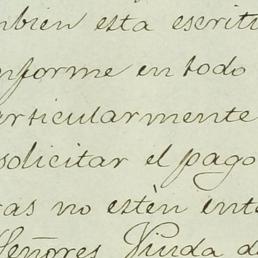 mbien esta escritu
nforme en todo
articularmente
solicitar el pago
ras no estèn ente
Señores Viuda d